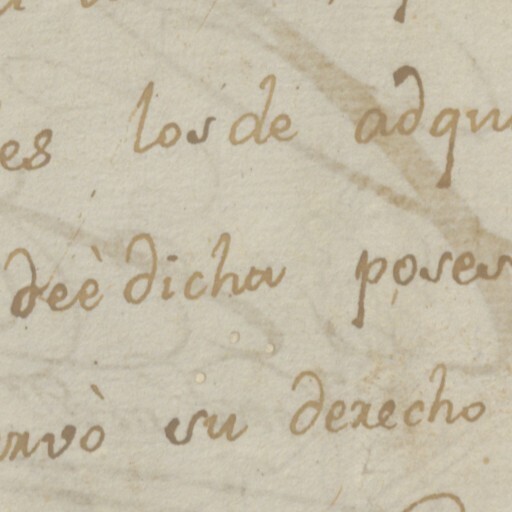 es los de adqu
de è dicha poses
rvò su derecho